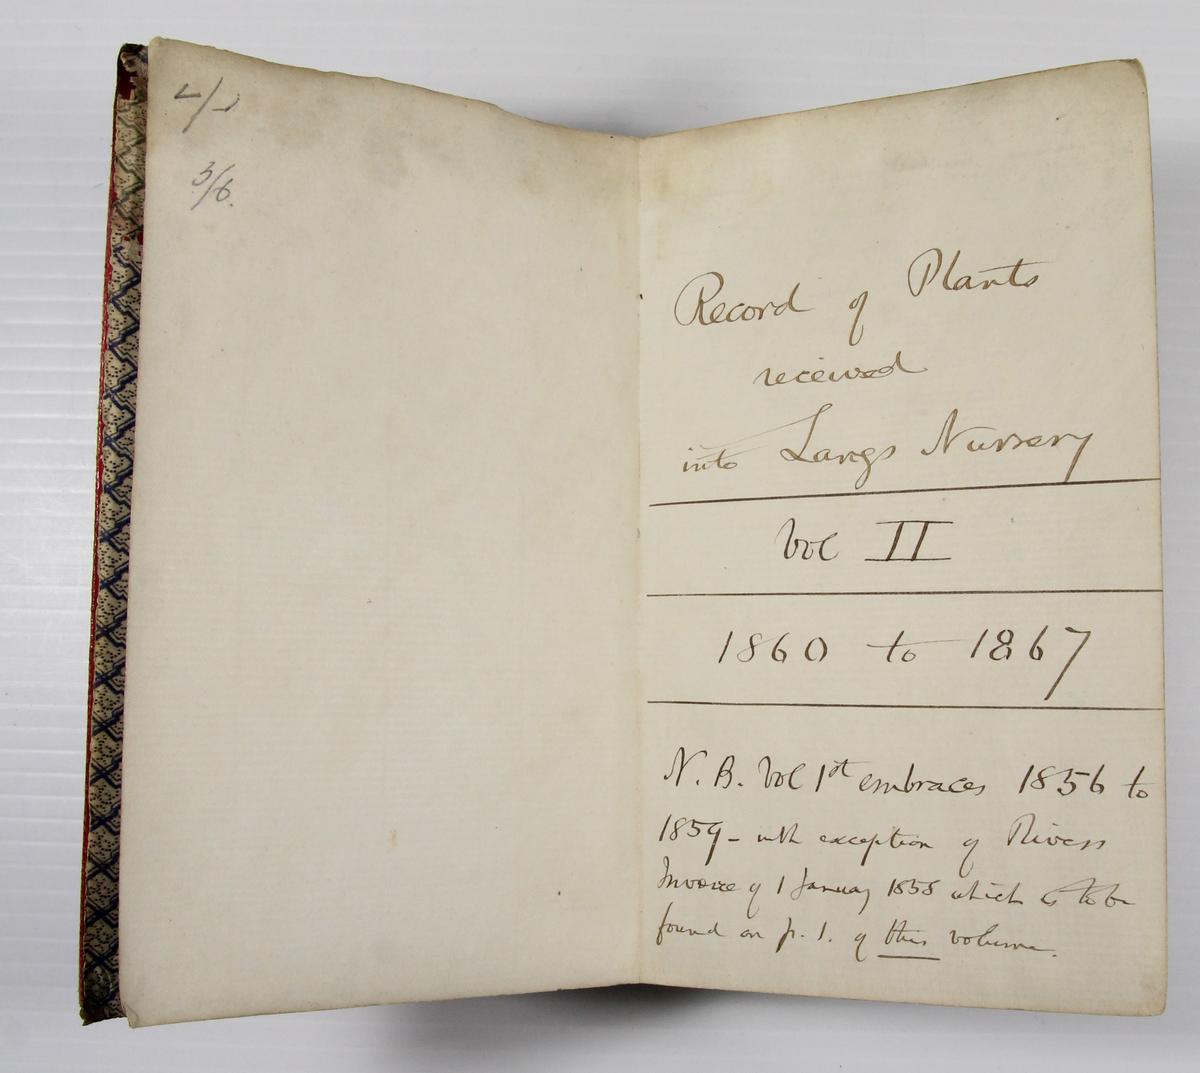 3/6.
Record of Plants
received
into Langs Nursery
Vol II
1860 to 1867
N. B. Vol 1st embraces 1856 to
1859 - with exception of Rivers
Invoice of 1 January 1858 which is to be
found on p. 1. of this volume.